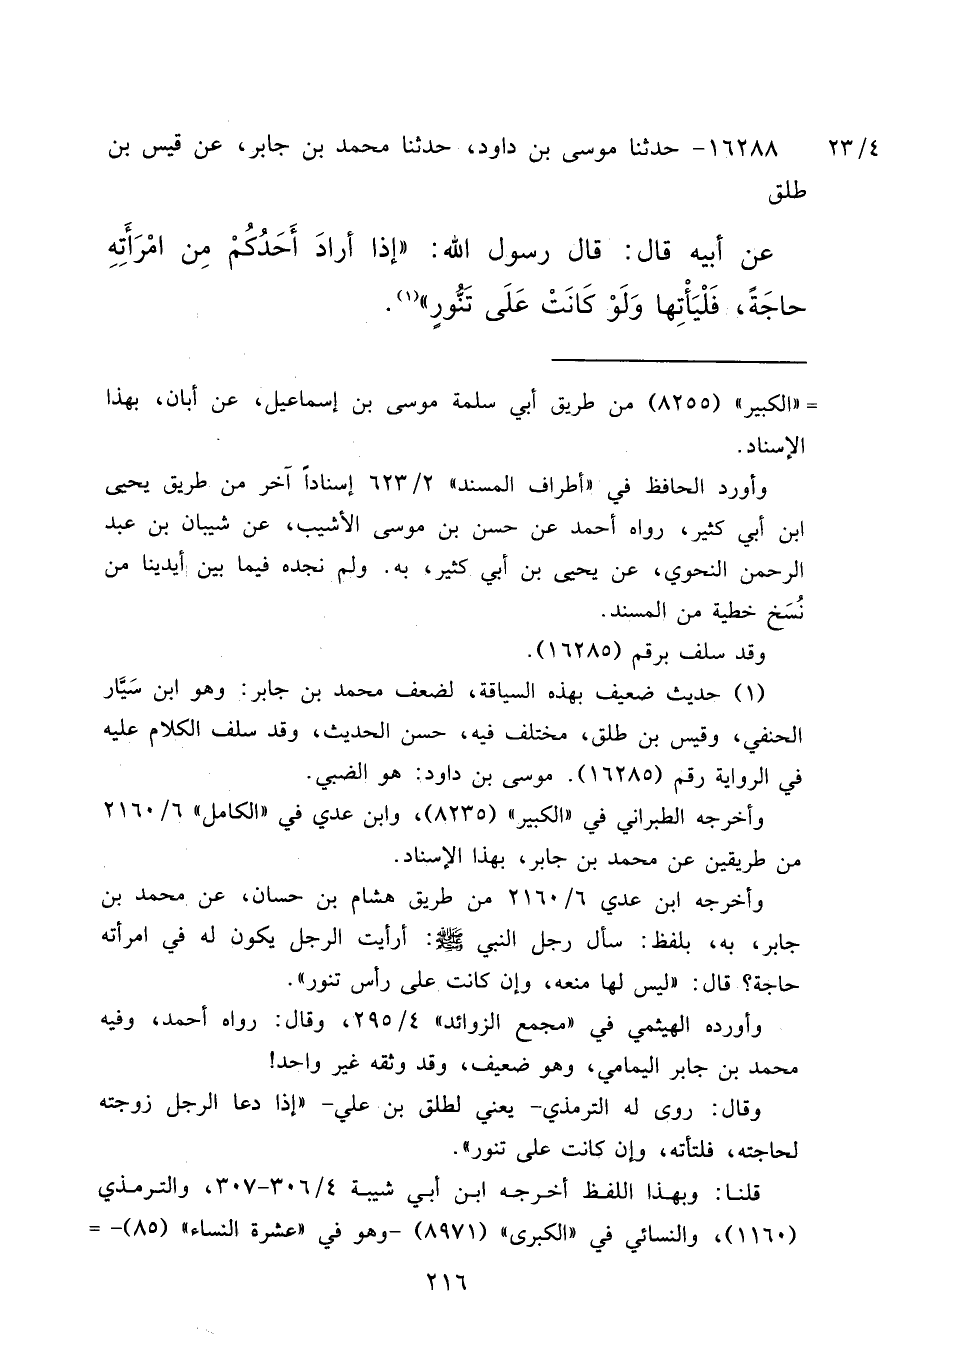 ٢٣/٤ ١٦٢٨٨- حدثنا موسى بن داود، حدثنا محمد بن جابر، عن قيس بن
طلق
عن أبيه قال: قال رسول الله: «إذا أرادَ أَحَدُكُمْ مِن امْرَأَتِهِ
حاجَةً، فَلْيَأْتِها وَلَوْ كَانَتْ عَلَى تَنُّورٍ»(١).
= «الكبير» (٨٢٥٥) من طريق أبي سلمة موسى بن إسماعيل، عن أبان، بهذا
الإسناد.
وأورد الحافظ في «أطراف المسند» ٦٢٣/٢ إسناداً آخر من طريق يحيى
ابن أبي كثير، رواه أحمد عن حسن بن موسى الأشيب، عن شيبان بن عبد
الرحمن النحوي، عن يحيى بن أبي كثير، به. ولم نجده فيما بين أيدينا من
نُسَخ خطية من المسند.
وقد سلف برقم (١٦٢٨٥).
(١) حديث ضعيف بهذه السياقة، لضعف محمد بن جابر: وهو ابن سَيَّار
الحنفي، وقيس بن طلق، مختلف فيه، حسن الحديث، وقد سلف الكلام عليه
في الرواية رقم (١٦٢٨٥). موسى بن داود: هو الضبي.
وأخرجه الطبراني في «الكبير» (٨٢٣٥)، وابن عدي في «الكامل» ٢١٦٠/٦
من طريقين عن محمد بن جابر، بهذا الإسناد.
وأخرجه ابن عدي ٢١٦٠/٦ من طريق هشام بن حسان، عن محمد بن
جابر، به، بلفظ: سأل رجل النبي ﷺ: أرأيت الرجل يكون له في امرأته
حاجة؟ قال: «ليس لها منعه، وإن كانت على رأس تنور».
وأورده الهيثمي في «مجمع الزوائد» ٢٩٥/٤، وقال: رواه أحمد، وفيه
محمد بن جابر اليمامي، وهو ضعيف، وقد وثقه غير واحد!
وقال: روى له الترمذي- يعني لطلق بن علي- «إذا دعا الرجل زوجته
لحاجته، فلتأته، وإن كانت على تنور».
قلنا: وبهذا اللفظ أخرجه ابن أبي شيبة ٣٠٦/٤-٣٠٧، والترمذي
(١١٦٠)، والنسائي في «الكبرى» (٨٩٧١) -وهو في «عشرة النساء» (٨٥)- =
٢١٦